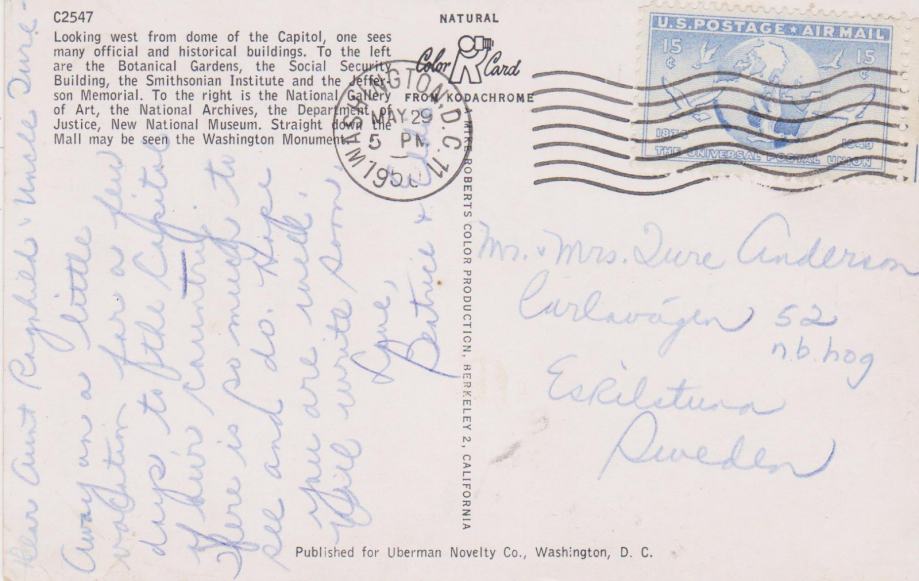 C2547
Looking west from dome of the Capitol, one sees
many official and historical buildings. To the left
are the Botanical Gardens, the Social Security
Building, the Smithsonian Institute and the Jeffer-
son Memorial. To the right is the National Gallery
of Art, the National Archives, the Department of
Justice, New National Museum. Straight down the
Mall may be seen the Washington Monument.
NATURAL
Color Card
FROM KODACHROME
WASHINGTON, D.C. 11
MAY 29
5 PM
U.S. POSTAGE ★ AIR MAIL
15¢ 15¢
1874 1949
THE UNIVERSAL POSTAL UNION
Dear Aunt Ragnhild & Uncle Ture -
Away on a little
vacation for a few
days to the Capitol
of our country
There is so much to
see and do. Hope
you are well.
Will write soon
Love,
Beatrice &
MIKE ROBERTS COLOR PRODUCTION, BERKELEY 2, CALIFORNIA
Mr. & Mrs. Ture Anderson
Carlavägen 52
n.b. hog
Eskilstuna
Sweden
Published for Uberman Novelty Co., Washington, D. C.